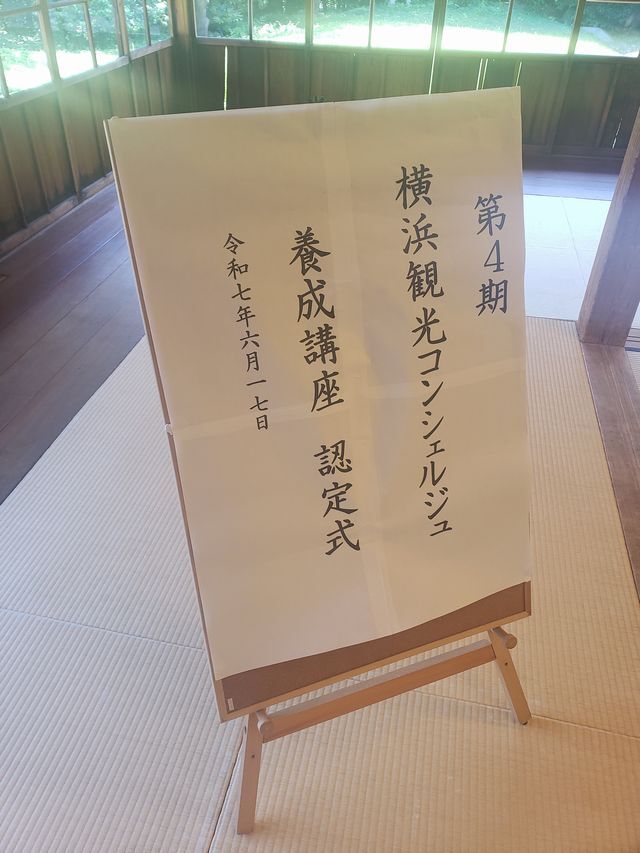 第4期
横浜観光コンシェルジュ
養成講座　認定式
令和七年六月一七日